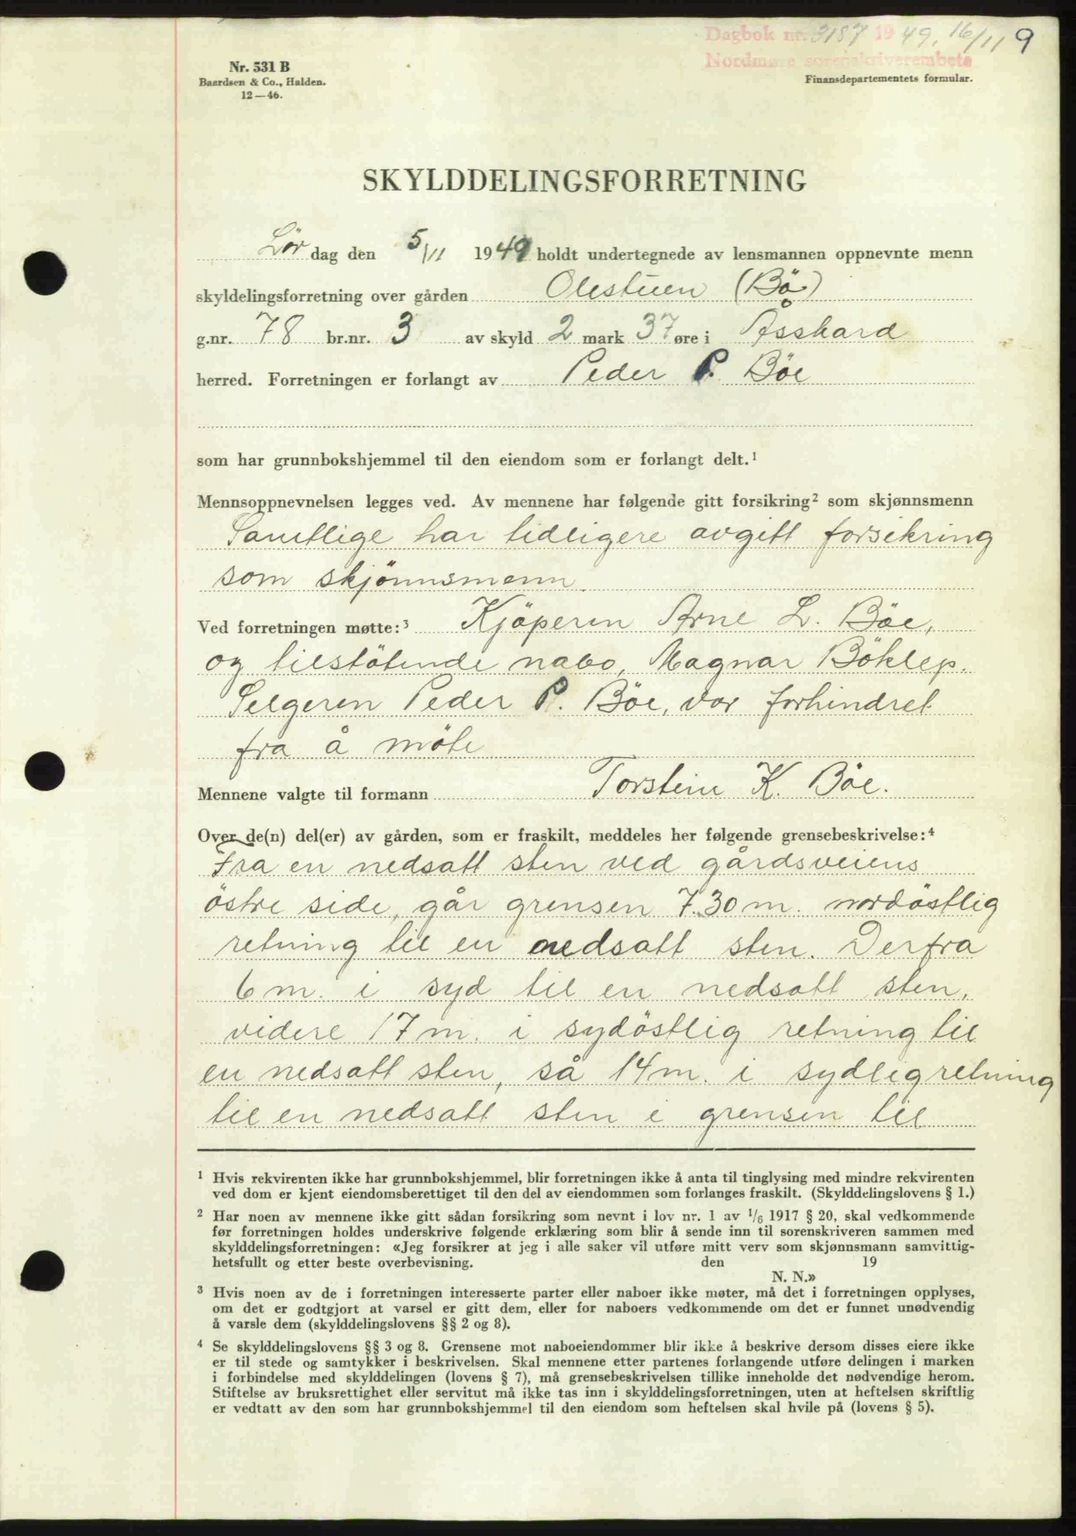 Dagbok nr. 3187 1949. 16/11 9
Nordmøre sorenskriverembete
Nr. 531 B
Baardsen & Co., Halden.
12—46.
Finansdepartementets formular.
SKYLDDELINGSFORRETNING
Lør dag den 5/11 1949 holdt undertegnede av lensmannen oppnevnte menn
skyldelingsforretning over gården Olestuen (Bö)
g.nr. 78 br.nr. 3 av skyld 2 mark 37 øre i Åsskard
herred. Forretningen er forlangt av Peder P. Böe
som har grunnbokshjemmel til den eiendom som er forlangt delt.¹
Mennsoppnevnelsen legges ved. Av mennene har følgende gitt forsikring² som skjønnsmenn
Samtlige har tidligere avgitt forsikring
som skjönnsmenn.
Ved forretningen møtte:³ Kjöperen Arne L. Böe,
og tilstötende nabo, Magnar Böklep.
Selgeren Peder P. Böe, var forhindret
fra å möte
Mennene valgte til formann Torstein K. Böe.
Over de(n) del(er) av gården, som er fraskilt, meddeles her følgende grensebeskrivelse:⁴
Fra en nedsatt sten ved gårdsveiens
östre side, går grensen 7.30 m. nordöstlig
retning til en nedsatt sten. Derfra
6 m. i syd til en nedsatt sten,
videre 17 m. i sydöstlig retning til
en nedsatt sten, så 14 m. i sydlig retning
til en nedsatt sten i grensen til
¹ Hvis rekvirenten ikke har grunnbokshjemmel, blir forretningen ikke å anta til tinglysing med mindre rekvirenten
ved dom er kjent eiendomsberettiget til den del av eiendommen som forlanges fraskilt. (Skylddelingslovens § 1.)
² Har noen av mennene ikke gitt sådan forsikring som nevnt i lov nr. 1 av 1/6 1917 § 20, skal vedkommende
før forretningen holdes underskrive følgende erklæring som blir å sende inn til sorenskriveren sammen med
skylddelingsforretningen: «Jeg forsikrer at jeg i alle saker vil utføre mitt verv som skjønnsmann samvittig-
hetsfullt og etter beste overbevisning. den 19
N. N.»
³ Hvis noen av de i forretningen interesserte parter eller naboer ikke møter, må det i forretningen opplyses,
om det er godtgjort at varsel er gitt dem, eller for naboers vedkommende om det er funnet unødvendig
å varsle dem (skylddelingslovens §§ 2 og 8).
⁴ Se skylddelingslovens §§ 3 og 8. Grensene mot naboeiendommer blir ikke å beskrive dersom disses eiere ikke
er til stede og samtykker i beskrivelsen. Skal mennene etter partenes forlangende utføre delingen i marken
i forbindelse med skylddelingen (lovens § 7), må grensebeskrivelsen tillike inneholde det nødvendige herom.
Stiftelse av bruksrettighet eller servitut må ikke tas inn i skylddelingsforretningen, uten at heftelsen skriftlig
er vedtatt av den som har grunnbokshjemmel til den eiendom som heftelsen skal hvile på (lovens § 5).